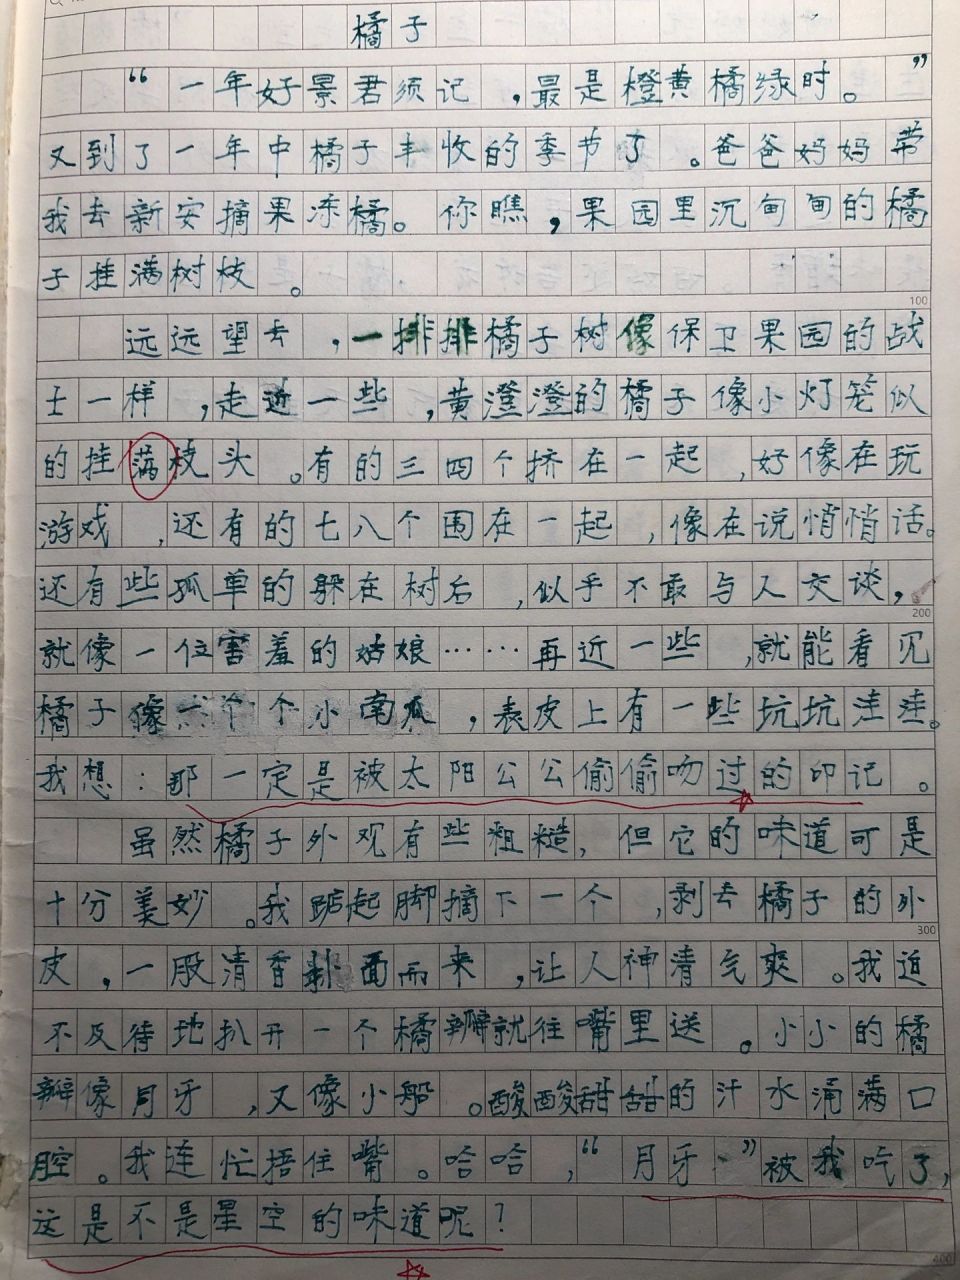 橘子
“一年好景君须记，最是橙黄橘绿时。”
又到了一年中橘子丰收的季节了。爸爸妈妈带
我去新安摘果冻橘。你瞧，果园里沉甸甸的橘
子挂满树枝。
100
远远望去，一排排橘子树像保卫果园的战
士一样，走近一些，黄澄澄的橘子像小灯笼似
的挂满枝头。有的三四个挤在一起，好像在玩
游戏，还有的七八个围在一起，像在说悄悄话。
还有些孤单的躲在树后，似乎不敢与人交谈，
200
就像一位害羞的姑娘……再近一些，就能看见
橘子像一个个小南瓜，表皮上有一些坑坑洼洼。
我想：那一定是被太阳公公偷偷吻过的印记。
虽然橘子外观有些粗糙，但它的味道可是
十分美妙。我踮起脚摘下一个，剥去橘子的外
300
皮，一股清香扑面而来，让人神清气爽。我迫
不及待地扒开一个橘瓣就往嘴里送。小小的橘
瓣像月牙，又像小船。酸酸甜甜的汁水涌满口
腔。我连忙捂住嘴。哈哈，“月牙”被我吃了，
这是不是星空的味道呢？
400